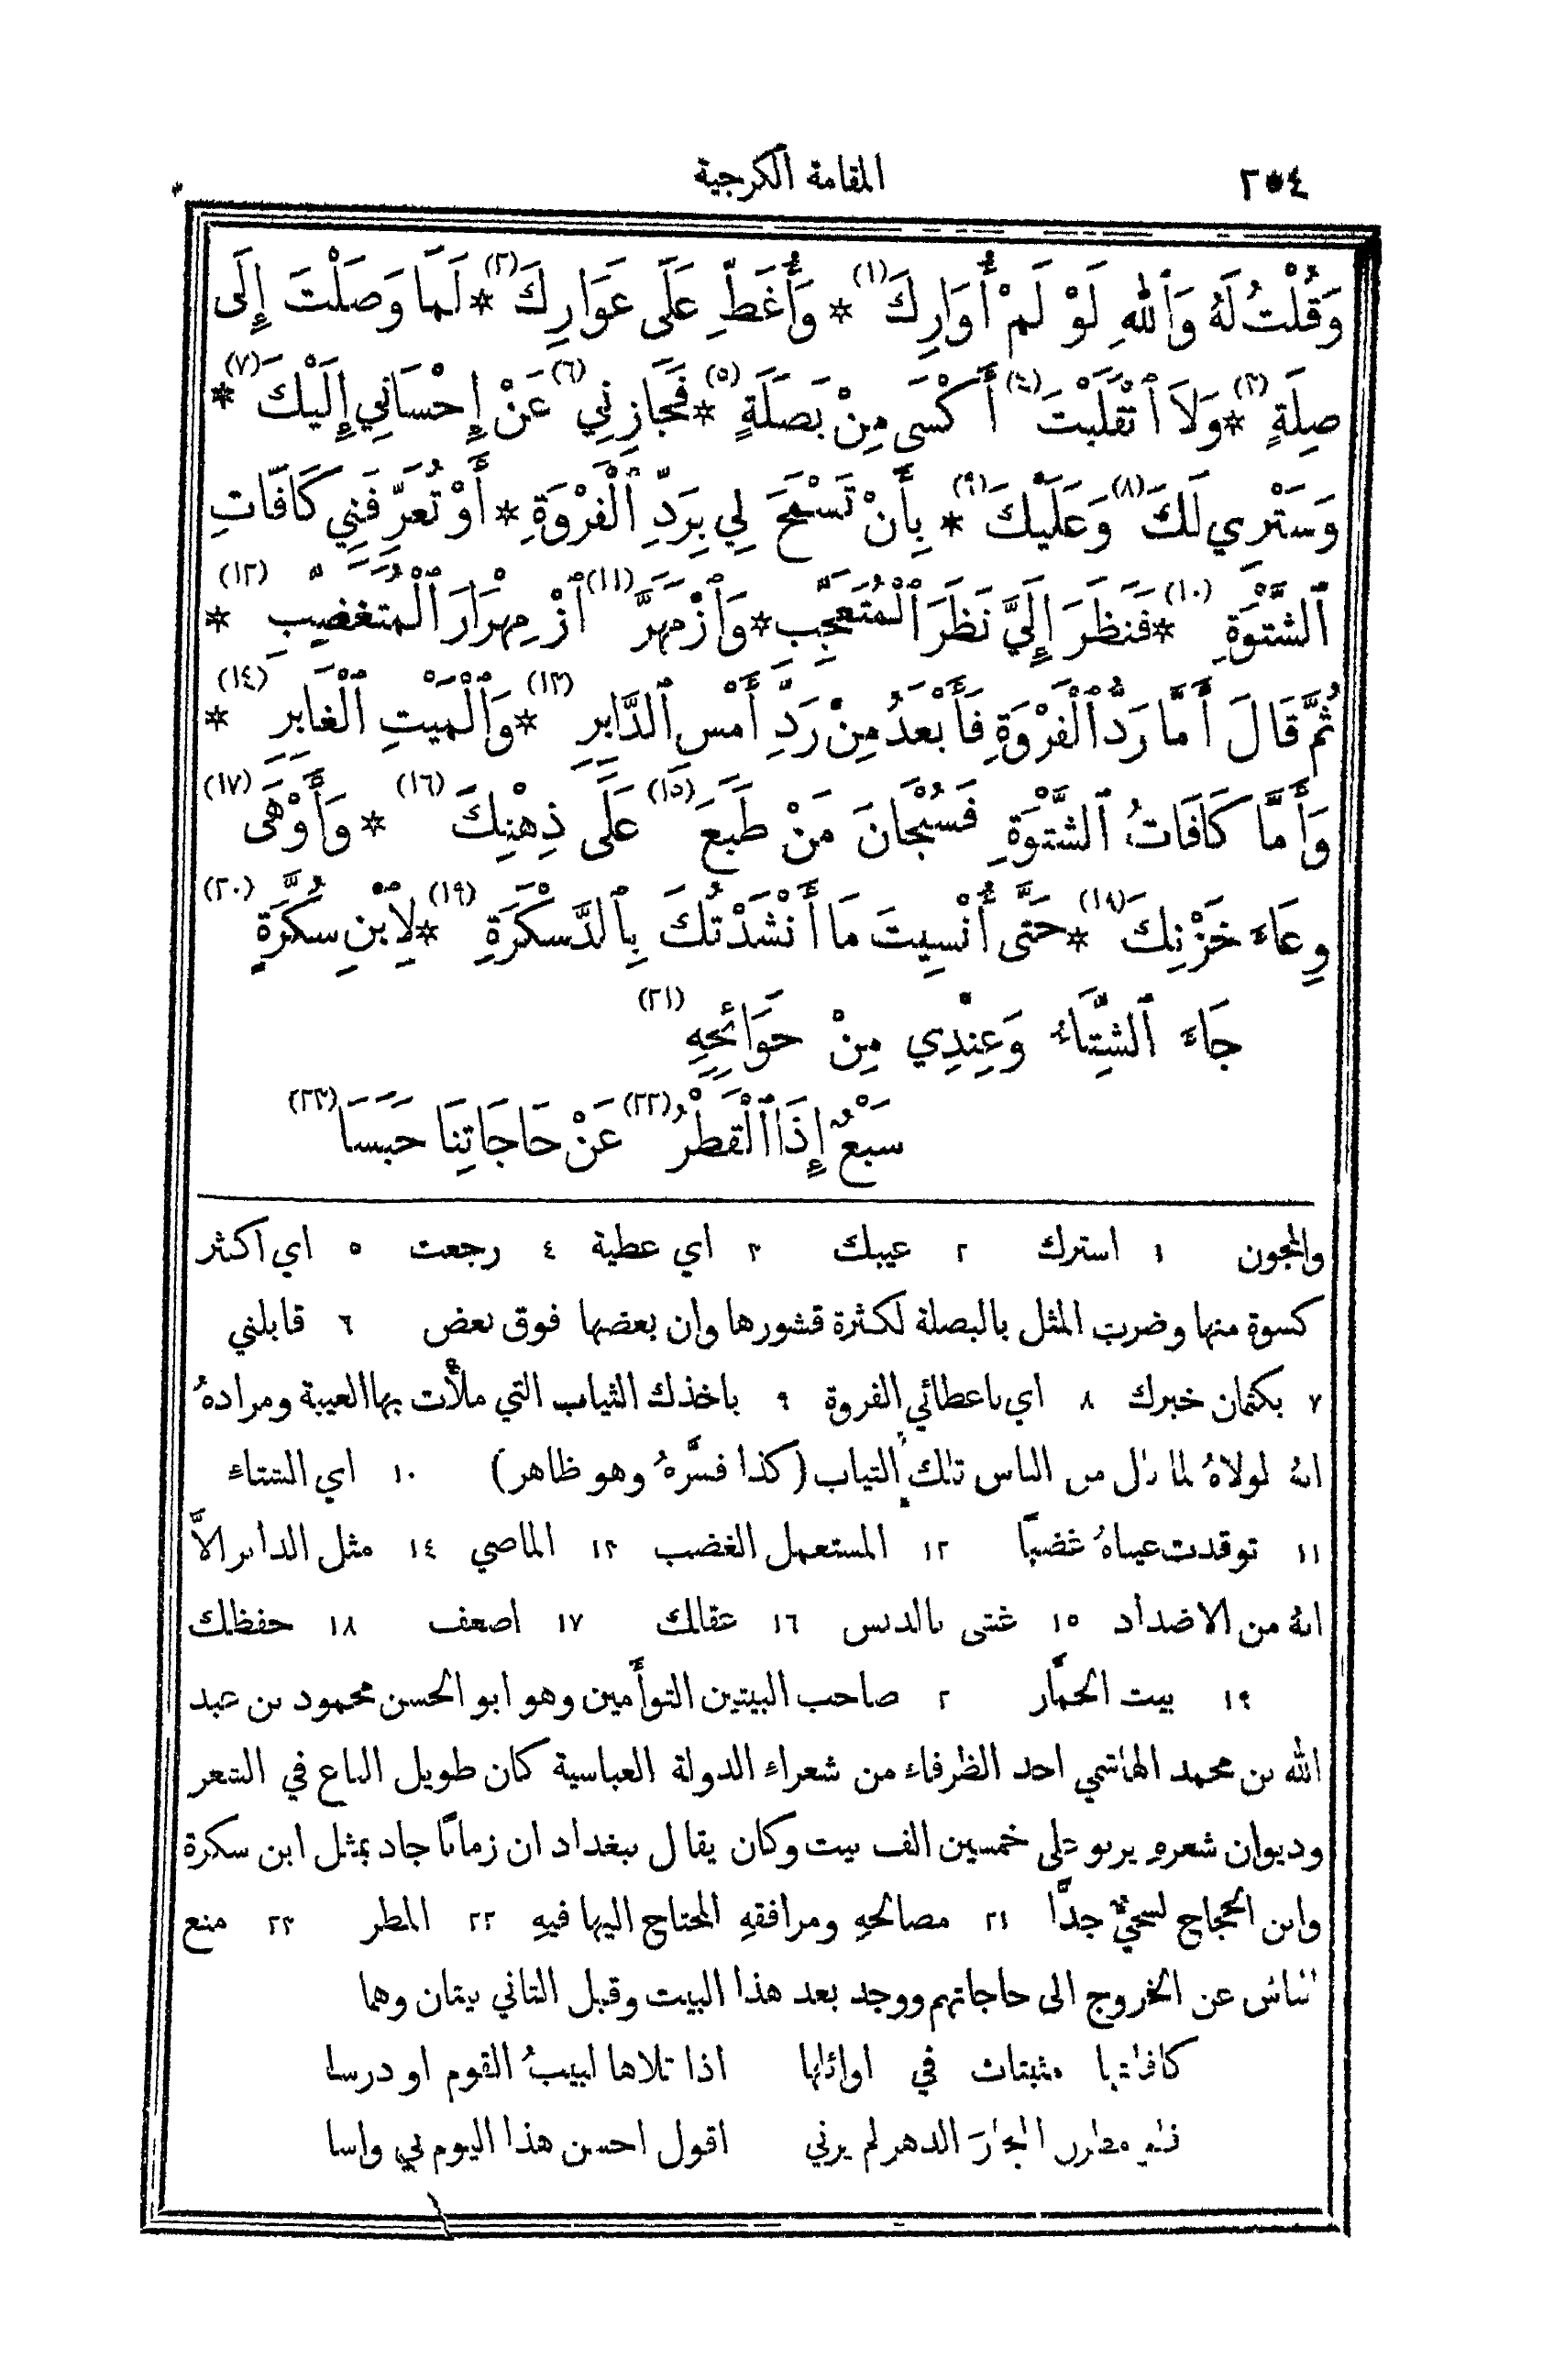 ٢٥٤ المقامة الكرجية
وَقُلْتُ لَهُ وَٱللهِ لَوْ لَمْ أُوَارِكَ (١) * وَأُغَطِّ عَلَى عَوَارِكَ (٢) * لَمَا وَصَلْتَ إِلَى
صِلَةٍ (٣) * وَلاَ ٱنْقَلَبْتَ (٤) أَكْسَى مِنْ بَصَلَةٍ (٥) * فَجَازِنِي (٦) عَنْ إِحْسَانِي إِلَيْكَ (٧) *
وَسَتْرِي لَكَ (٨) وَعَلَيْكَ (٩) * بِأَنْ تَسْمَحَ لِي بِرَدِّ ٱلْفَرْوَةِ * أَوْ تُعَرِّفَنِي كَافَاتِ
ٱلشَّتْوَةِ (١٠) * فَنَظَرَ إِلَيَّ نَظَرَ ٱلْمُتَعَجِّبِ * وَٱزْمَهَرَّ (١١) ٱزْمِهْرَارَ ٱلْمُتَغَضِّبِ (١٢) *
ثُمَّ قَالَ أَمَّا رَدُّ ٱلْفَرْوَةِ فَأَبْعَدُ مِنْ رَدِّ أَمْسِ ٱلدَّابِرِ (١٣) * وَٱلْمَيْتِ ٱلْغَابِرِ (١٤) *
وَأَمَّا كَافَاتُ ٱلشَّتْوَةِ فَسُبْحَانَ مَنْ طَبَعَ (١٥) عَلَى ذِهْنِكَ (١٦) * وَأَوْهَى (١٧)
وِعَاءَ خَزْنِكَ (١٨) * حَتَّى أُنْسِيتَ مَا أَنْشَدْتُكَ بِٱلدَّسْكَرَةِ (١٩) * لِٱبْنِ سُكَّرَةٍ (٢٠)
جَاءَ ٱلشِّتَاءُ وَعِنْدِي مِنْ حَوَائِجِهِ (٢١)
سَبْعٌ إِذَا ٱلْقَطْرُ (٢٢) عَنْ حَاجَاتِنَا حَبَسَا (٢٣)
والمجون ١ استرك ٢ عيبك ٣ اي عطية ٤ رجعت ٥ اي اكثر
كسوة منها وضرب المثل بالبصلة لكثرة قشورها وان بعضها فوق بعض ٦ قابلني
٧ بكتمان خبرك ٨ اي باعطائي الفروة ٩ باخذك الثياب التي ملأت بها العيبة ومرادهُ
انهُ لولاهُ لما نال من الناس تلك الثياب (كذا فسَّرهُ وهو ظاهر) ١٠ اي الشتاء
١١ توقدت عيناهُ غضبًا ١٢ المستعمل الغضب ١٣ الماضي ١٤ مثل الدابر الاَّ
انهُ من الاضداد ١٥ غشى بالدنس ١٦ عقلك ١٧ اضعف ١٨ حفظك
١٩ بيت الخمَّار ٢ صاحب البيتين التوأمين وهو ابو الحسن محمود بن عبد
الله بن محمد الهاشمي احد الظرفاء من شعراء الدولة العباسية كان طويل الباع في الشعر
وديوان شعره يربو على خمسين الف بيت وكان يقال ببغداد ان زمانًا جاد بمثل ابن سكرة
وابن الحجاج لسخيٌّ جدًّا ٢١ مصالحهِ ومرافقهِ المحتاج اليها فيهِ ٢٢ المطر ٢٣ منع
الناس عن الخروج الى حاجاتهم ووجد بعد هذا البيت وقبل الثاني بيتان وهما
كافاتها مثبتات في اوائلها اذا تلاها لبيبُ القوم او درسا
الدهر لم يرني اقول احسن هذا اليوم بي واسا